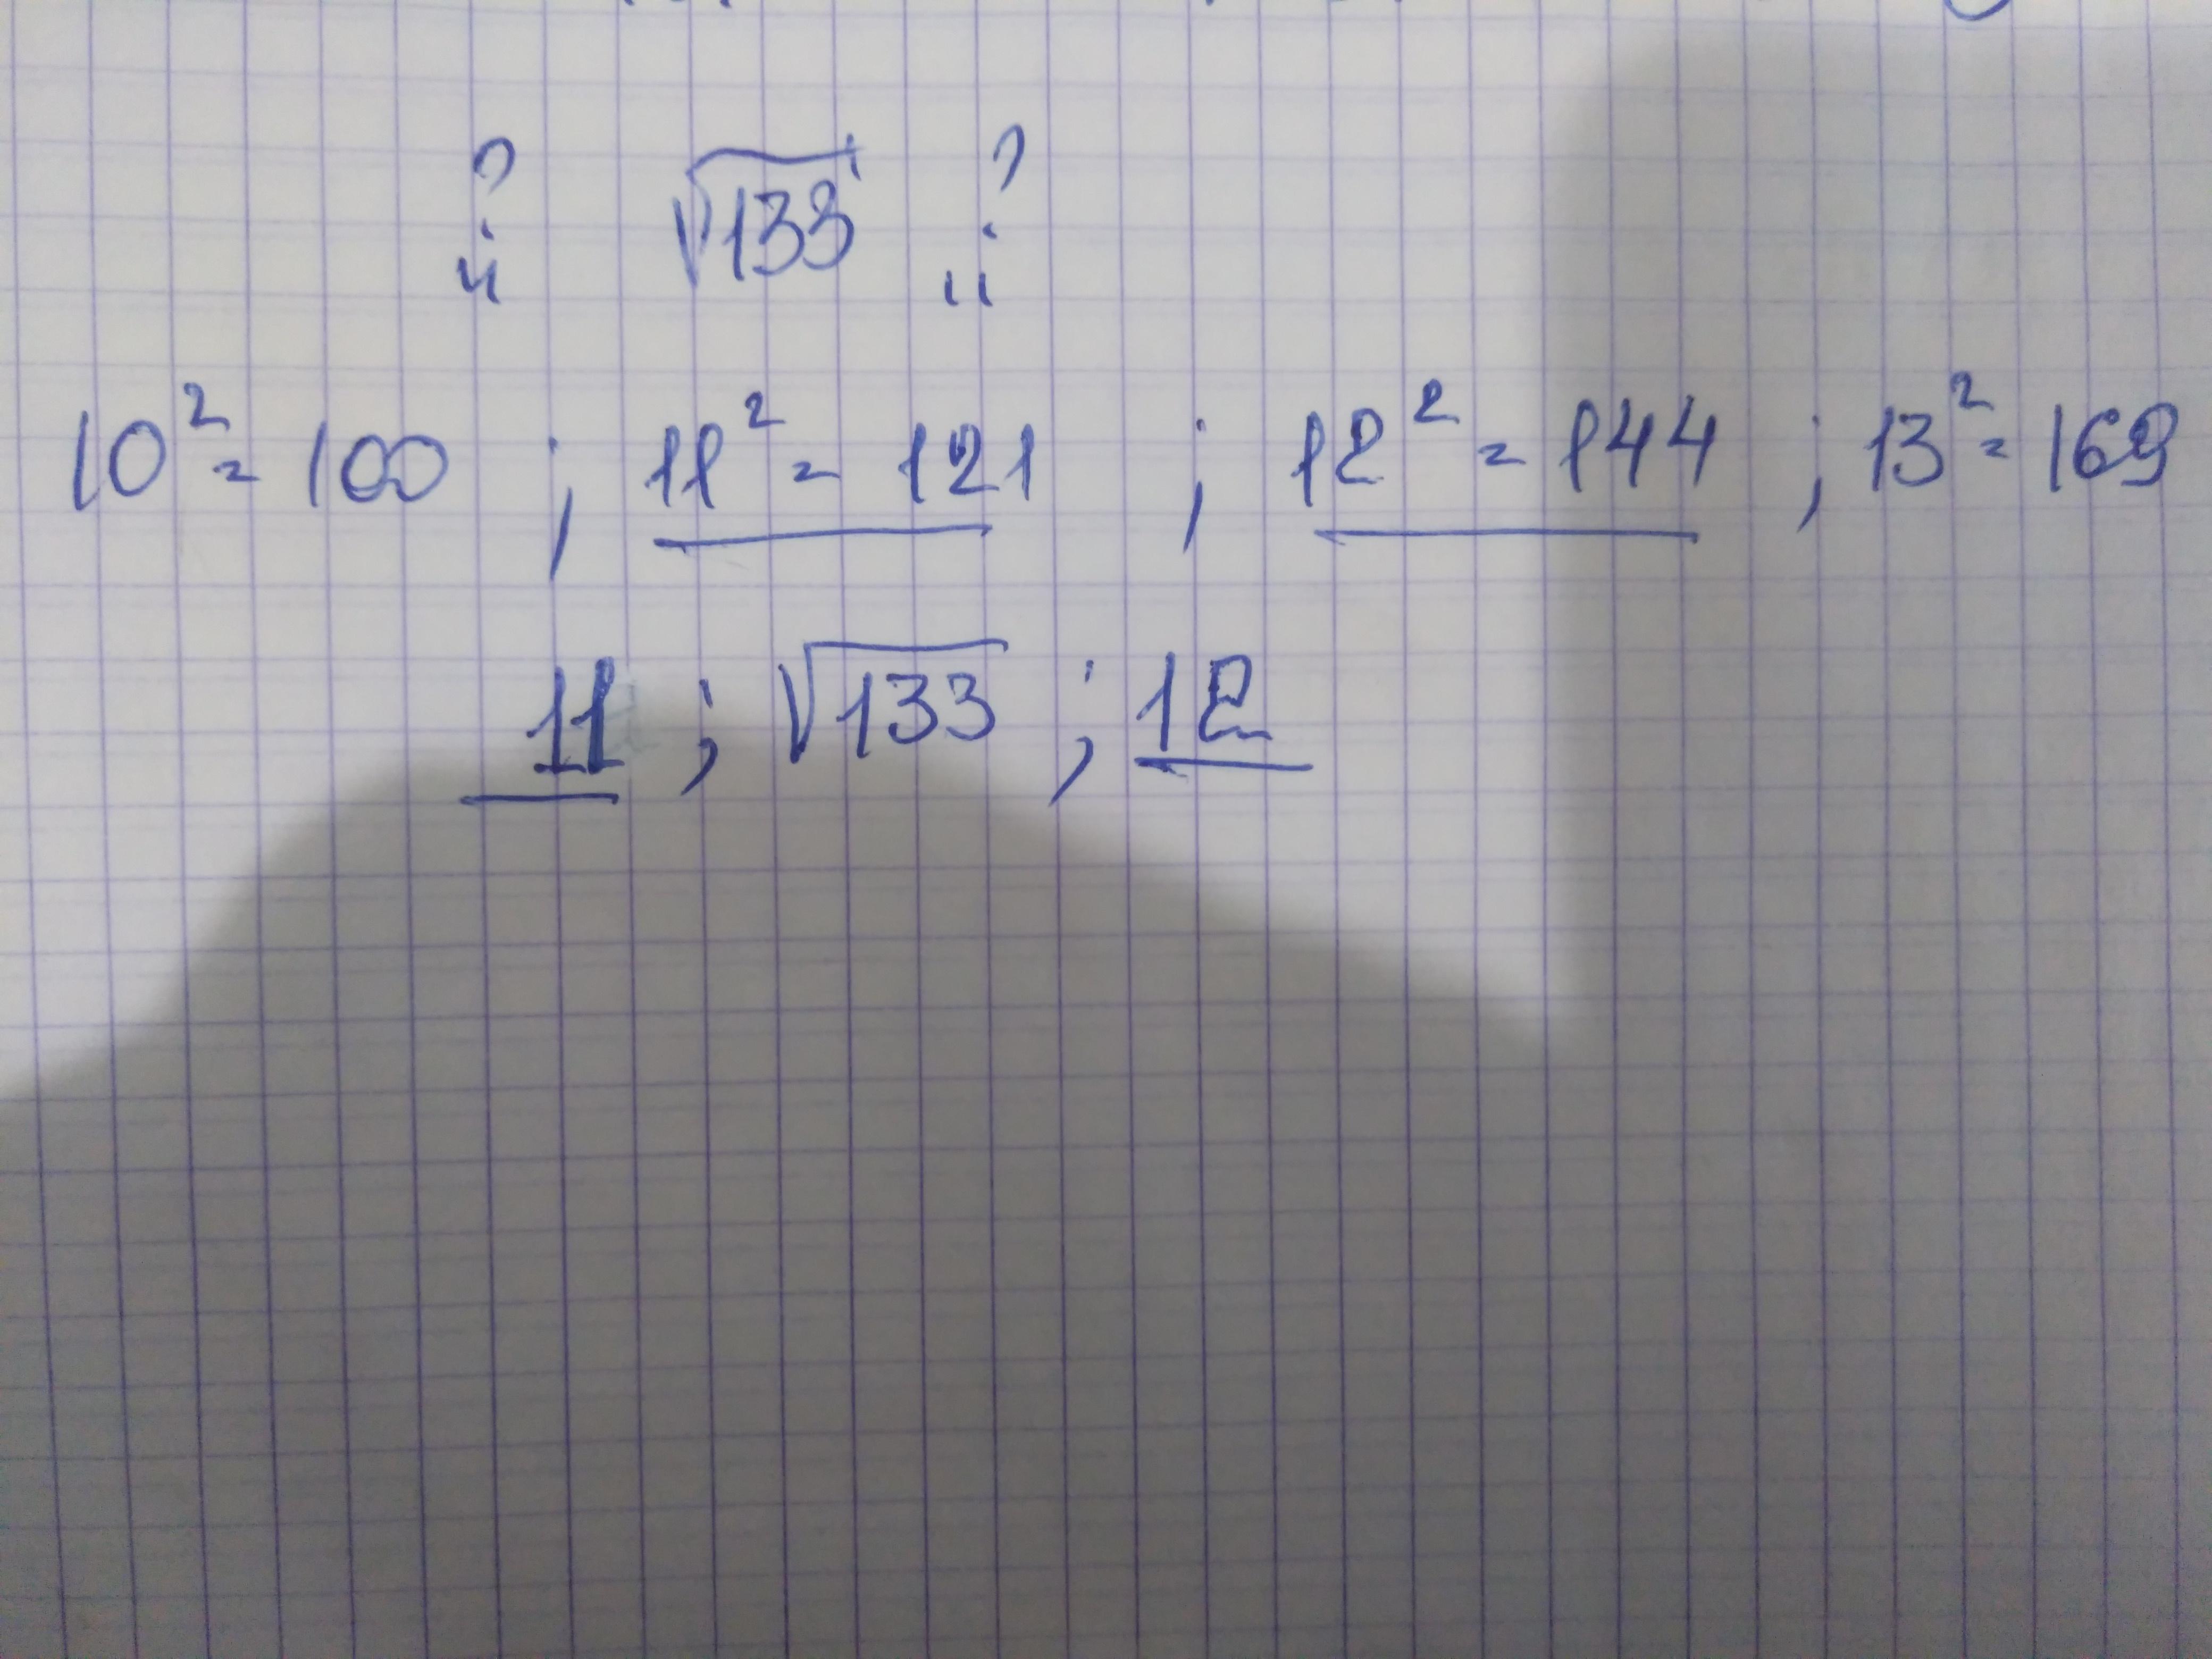 ? √133 ?
10² = 100 ; 11² = 121 ; 12² = 144 ; 13² = 169
11 ; √133 ; 12